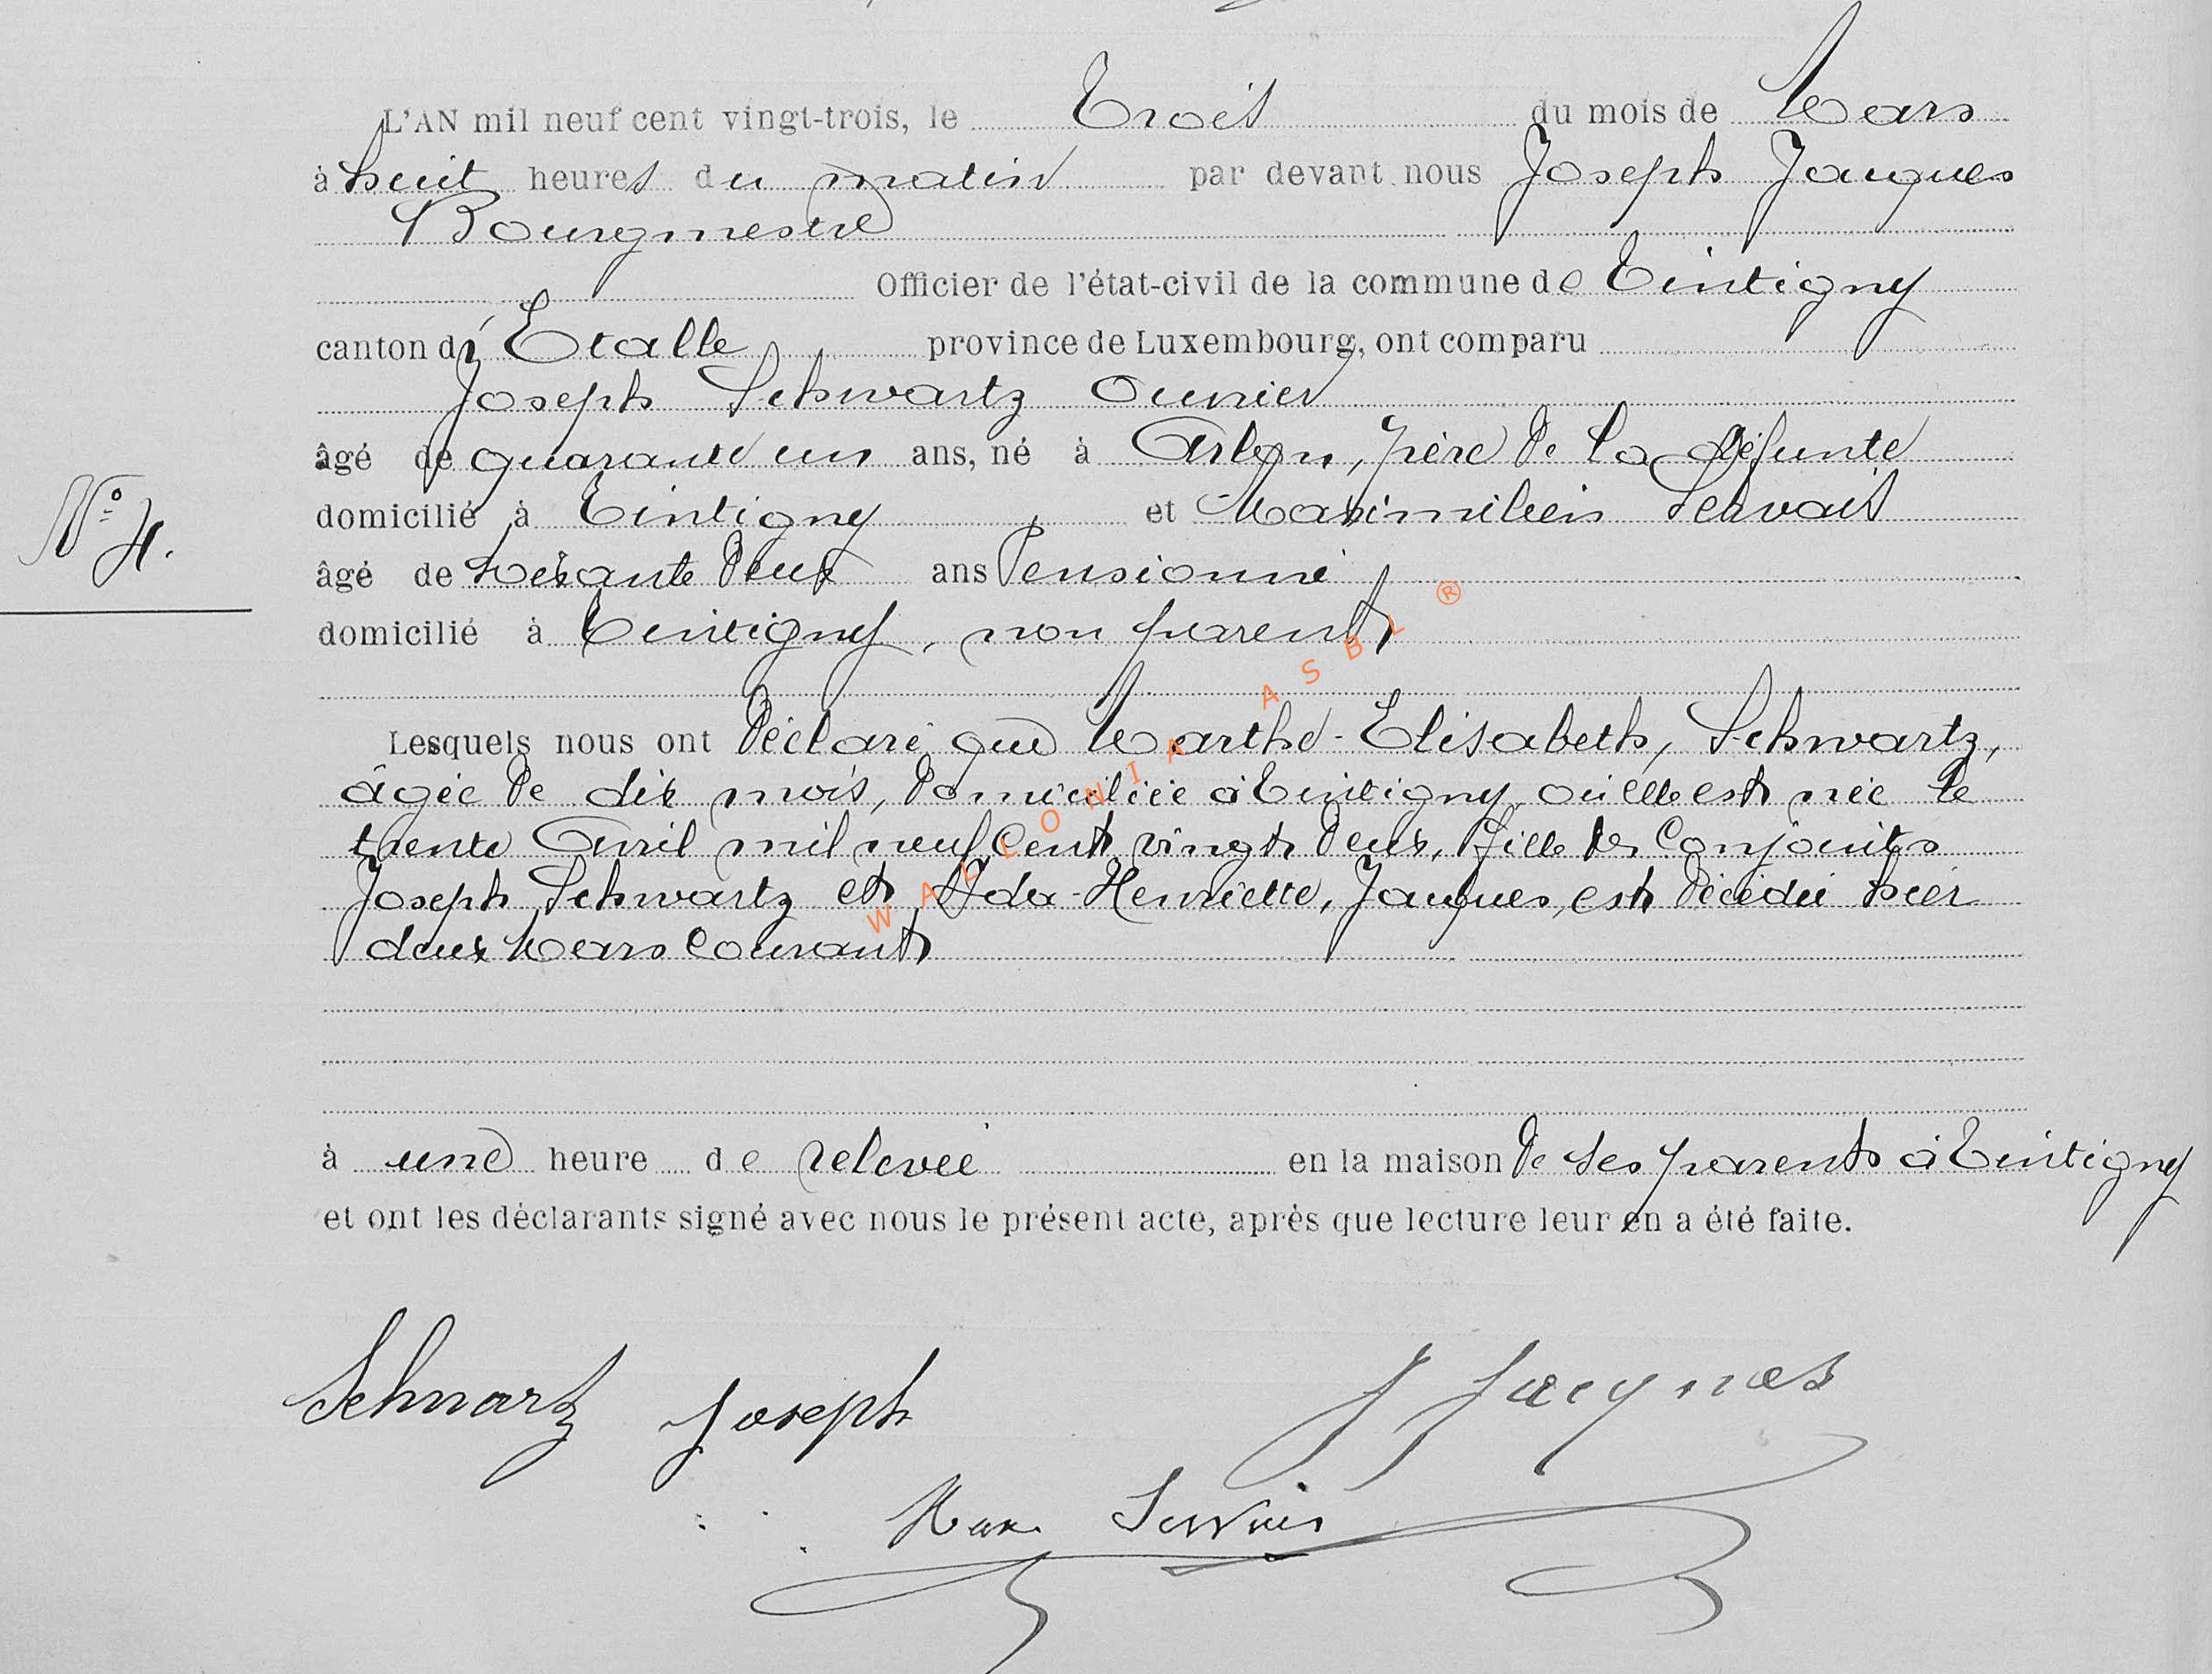 L'AN mil neuf cent vingt-trois, le Trois du mois de Mars
à huit heures du matin par devant nous Joseph Jacques
Bourgmestre
Officier de l'état-civil de la commune de Tintigny
canton d'Etalle province de Luxembourg, ont comparu
Joseph Schwartz Ouvrier
âgé de quarante un ans, né à Arlon, père de la défunte
N° 4.
domicilié à Tintigny et Maximilien Servais
âgé de soixante deux ans Pensionné
domicilié à Tintigny, non parent
Lesquels nous ont déclaré que Marthe-Elisabeth, Schwartz,
âgée de dix mois, domiciliée à Tintigny où elle est née le
trente Avril mil neuf Cent vingt deux, fille des Conjoints
Joseph Schwartz et Ida-Henriette, Jacques, est décédée hier
deux Mars Courant
à une heure de relevée en la maison de ses parents à Tintigny
et ont les déclarants signé avec nous le présent acte, après que lecture leur en a été faite.
Schwartz Joseph J Jacques
Max Servais
WALLONIA ASBL ®